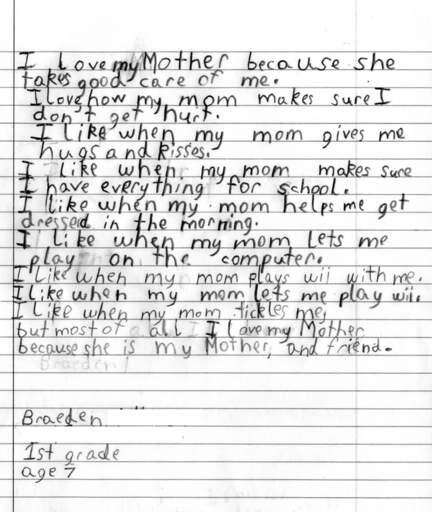 I love my Mother because she
takes good care of me.
I love how my mom makes sure I
don't get hurt.
I like when my mom gives me
hugs and kisses.
I like when my mom makes sure
I have everything for school.
I like when my mom helps me get
dressed in the morning.
I like when my mom lets me
play on the computer.
I like when my mom plays wii with me.
I like when my mom lets me play wii.
I like when my mom tickles me,
but most of all I love my Mother
because she is my Mother, and friend.
Braeden
Braeden
1st grade
age 7